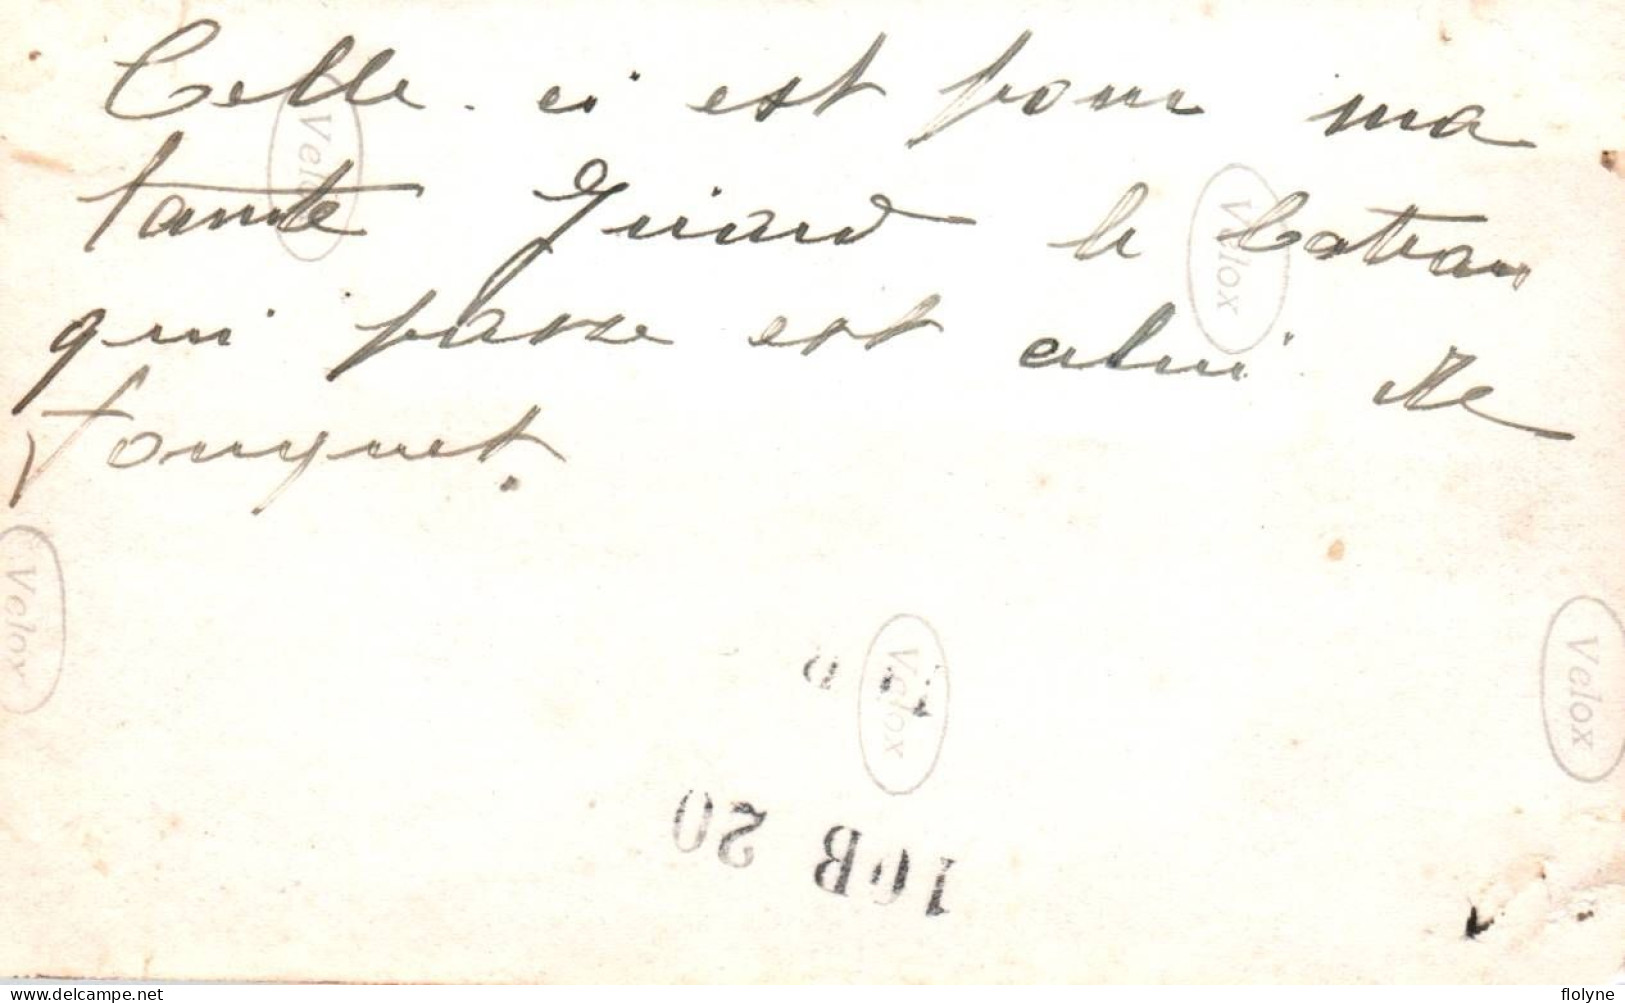 Celle-ci est pour ma
tante Girard le bateau
qui passe est celui de
Fouquet.
Velox
Velox
Velox
Velox
Velox
10B 20
© www.delcampe.net
flolyne